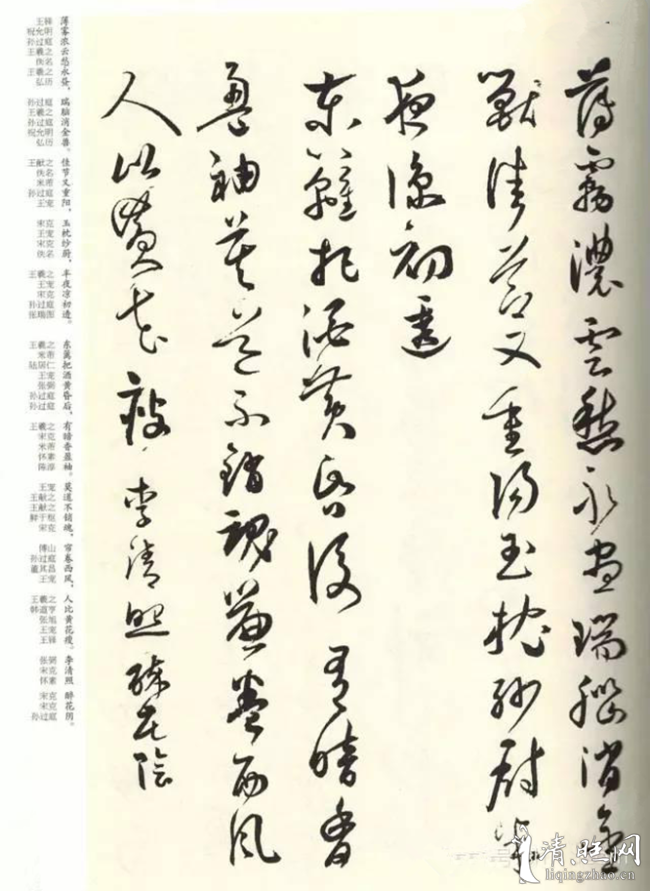 薄霧濃雲愁永晝瑞腦消金
獸佳節又重陽玉枕紗廚半
夜涼初透
東籬把酒黃昏後有暗香
盈袖莫道不銷魂簾卷西風
人比黃花瘦李清照醉花陰
薄雾浓云愁永昼，瑞脑消金兽。佳节又重阳，玉枕纱厨，半夜凉初透。东篱把酒黄昏后，有暗香盈袖。莫道不销魂，帘卷西风，人比黄花瘦。李清照醉花阴。
王铎
祝允明
孙过庭
王羲之
佚名
王羲之
弘历
孙过庭
王羲之
孙过庭
祝允明
弘历
王献之
佚名
米芾
孙过庭
王宠
宋克
王宠
宋克
佚名
王羲之
王宠
宋克
孙过庭
张瑞图
王羲之
米芾
陆居仁
王宠
张弼
孙过庭
孙过庭
王羲之
宋克
米芾
怀素
陈淳
王宠
王献之
王献之
鲜于枢
宋克
傅山
孙过庭
董其昌
王宠
王羲之
韩道亨
张旭
王宠
王铎
张弼
宋克
怀素
宋克
宋克
孙过庭
清照网
liqingzhao.cn